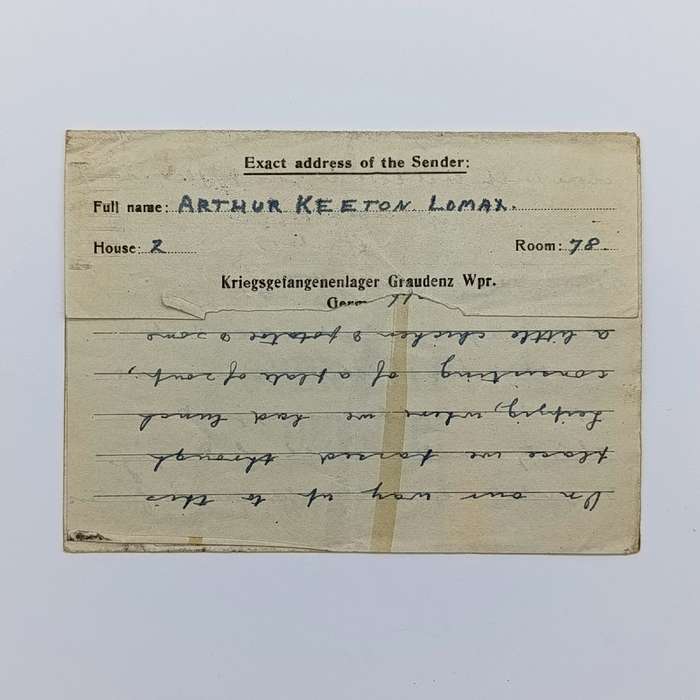 Exact address of the Sender:
Full name: ARTHUR KEETON LOMAX.
House: 2 Room: 78.
Kriegsgefangenenlager Graudenz Wpr.
On our way up to this
place we passed through
Leipzig, where we had lunch
consisting of a plate of soup,
a little chicken & potatoe & some